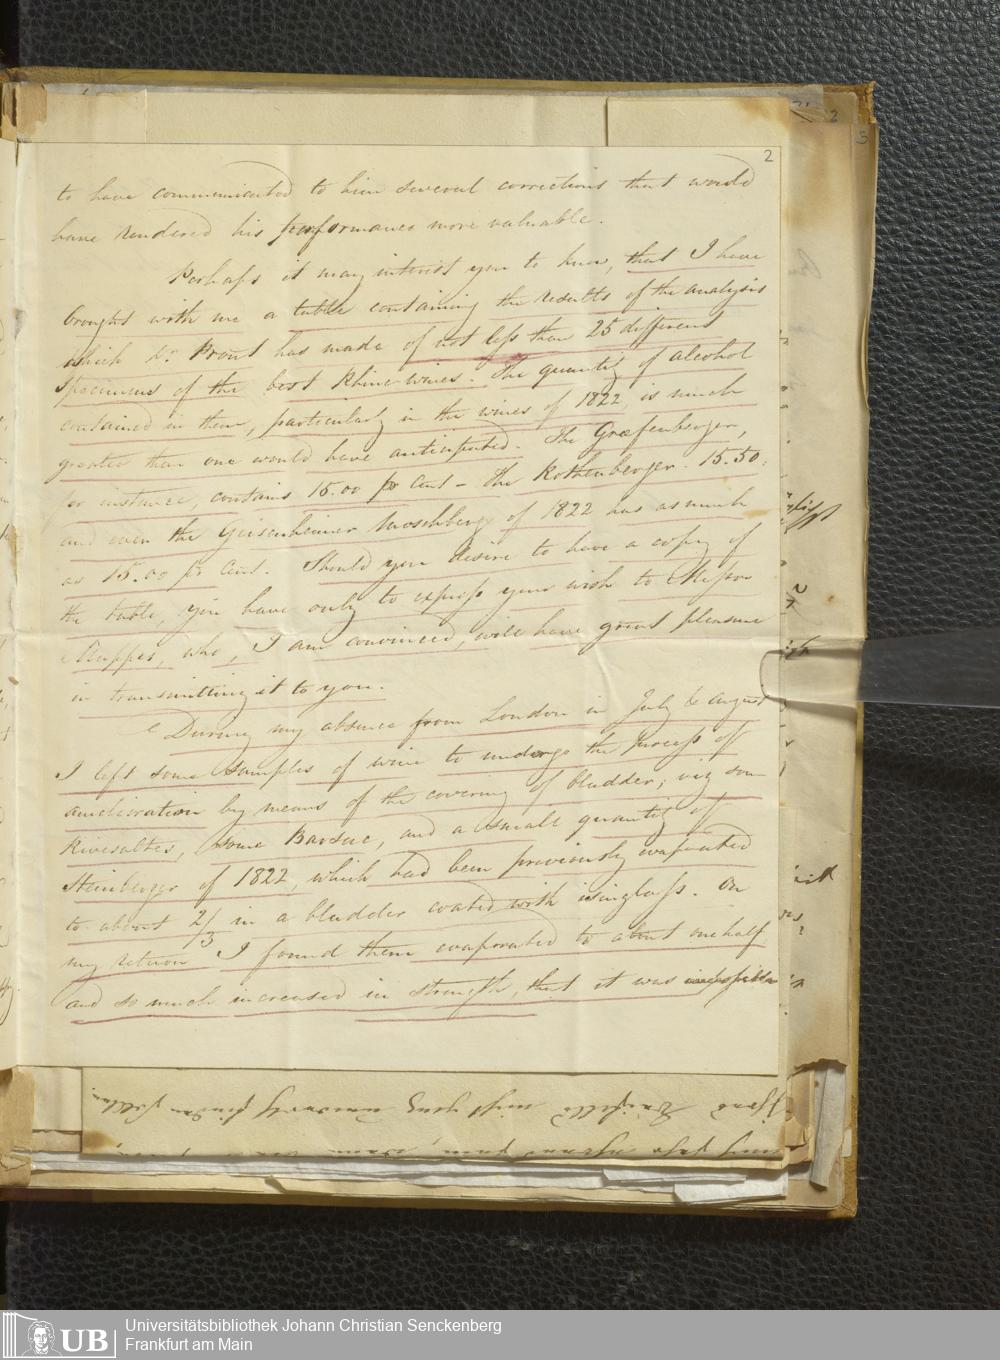 2
to have communicated to him several corrections that would
have rendered his performance more valuable.
Perhaps it may interest you to know, that I have
brought with me a table containing the results of the analysis
which Dr. Prout has made of not less than 25 different
specimens of the best Rhine-wines. The quantity of alcohol
contained in them, particularly in the wines of 1822, is much
greater than one would have anticipated. The Græfenberger,
for instance, contains 16.00 pr Cent - the Rothenberger 15.50:
and even the Geisenheimer Moschberg of 1822 has as much
as 15.00 pr Cent. Should you desire to have a copy of
the table, you have only to express your wish to Messrs
Mappes, who, I am convinced, will have great pleasure
in transmitting it to you.
During my absence from London in July & August
I left some samples of wine to undergo the process of
amelioration by means of the covering of bladder; viz some
Rivesaltes, some Barsac, and a small quantity of
Steinberger of 1822, which had been previously evaporated
to about 2/3 in a bladder coated with isinglass. On
my return I found them evaporated to about one half
and so much increased in strength, that it was
UB
Universitätsbibliothek Johann Christian Senckenberg
Frankfurt am Main